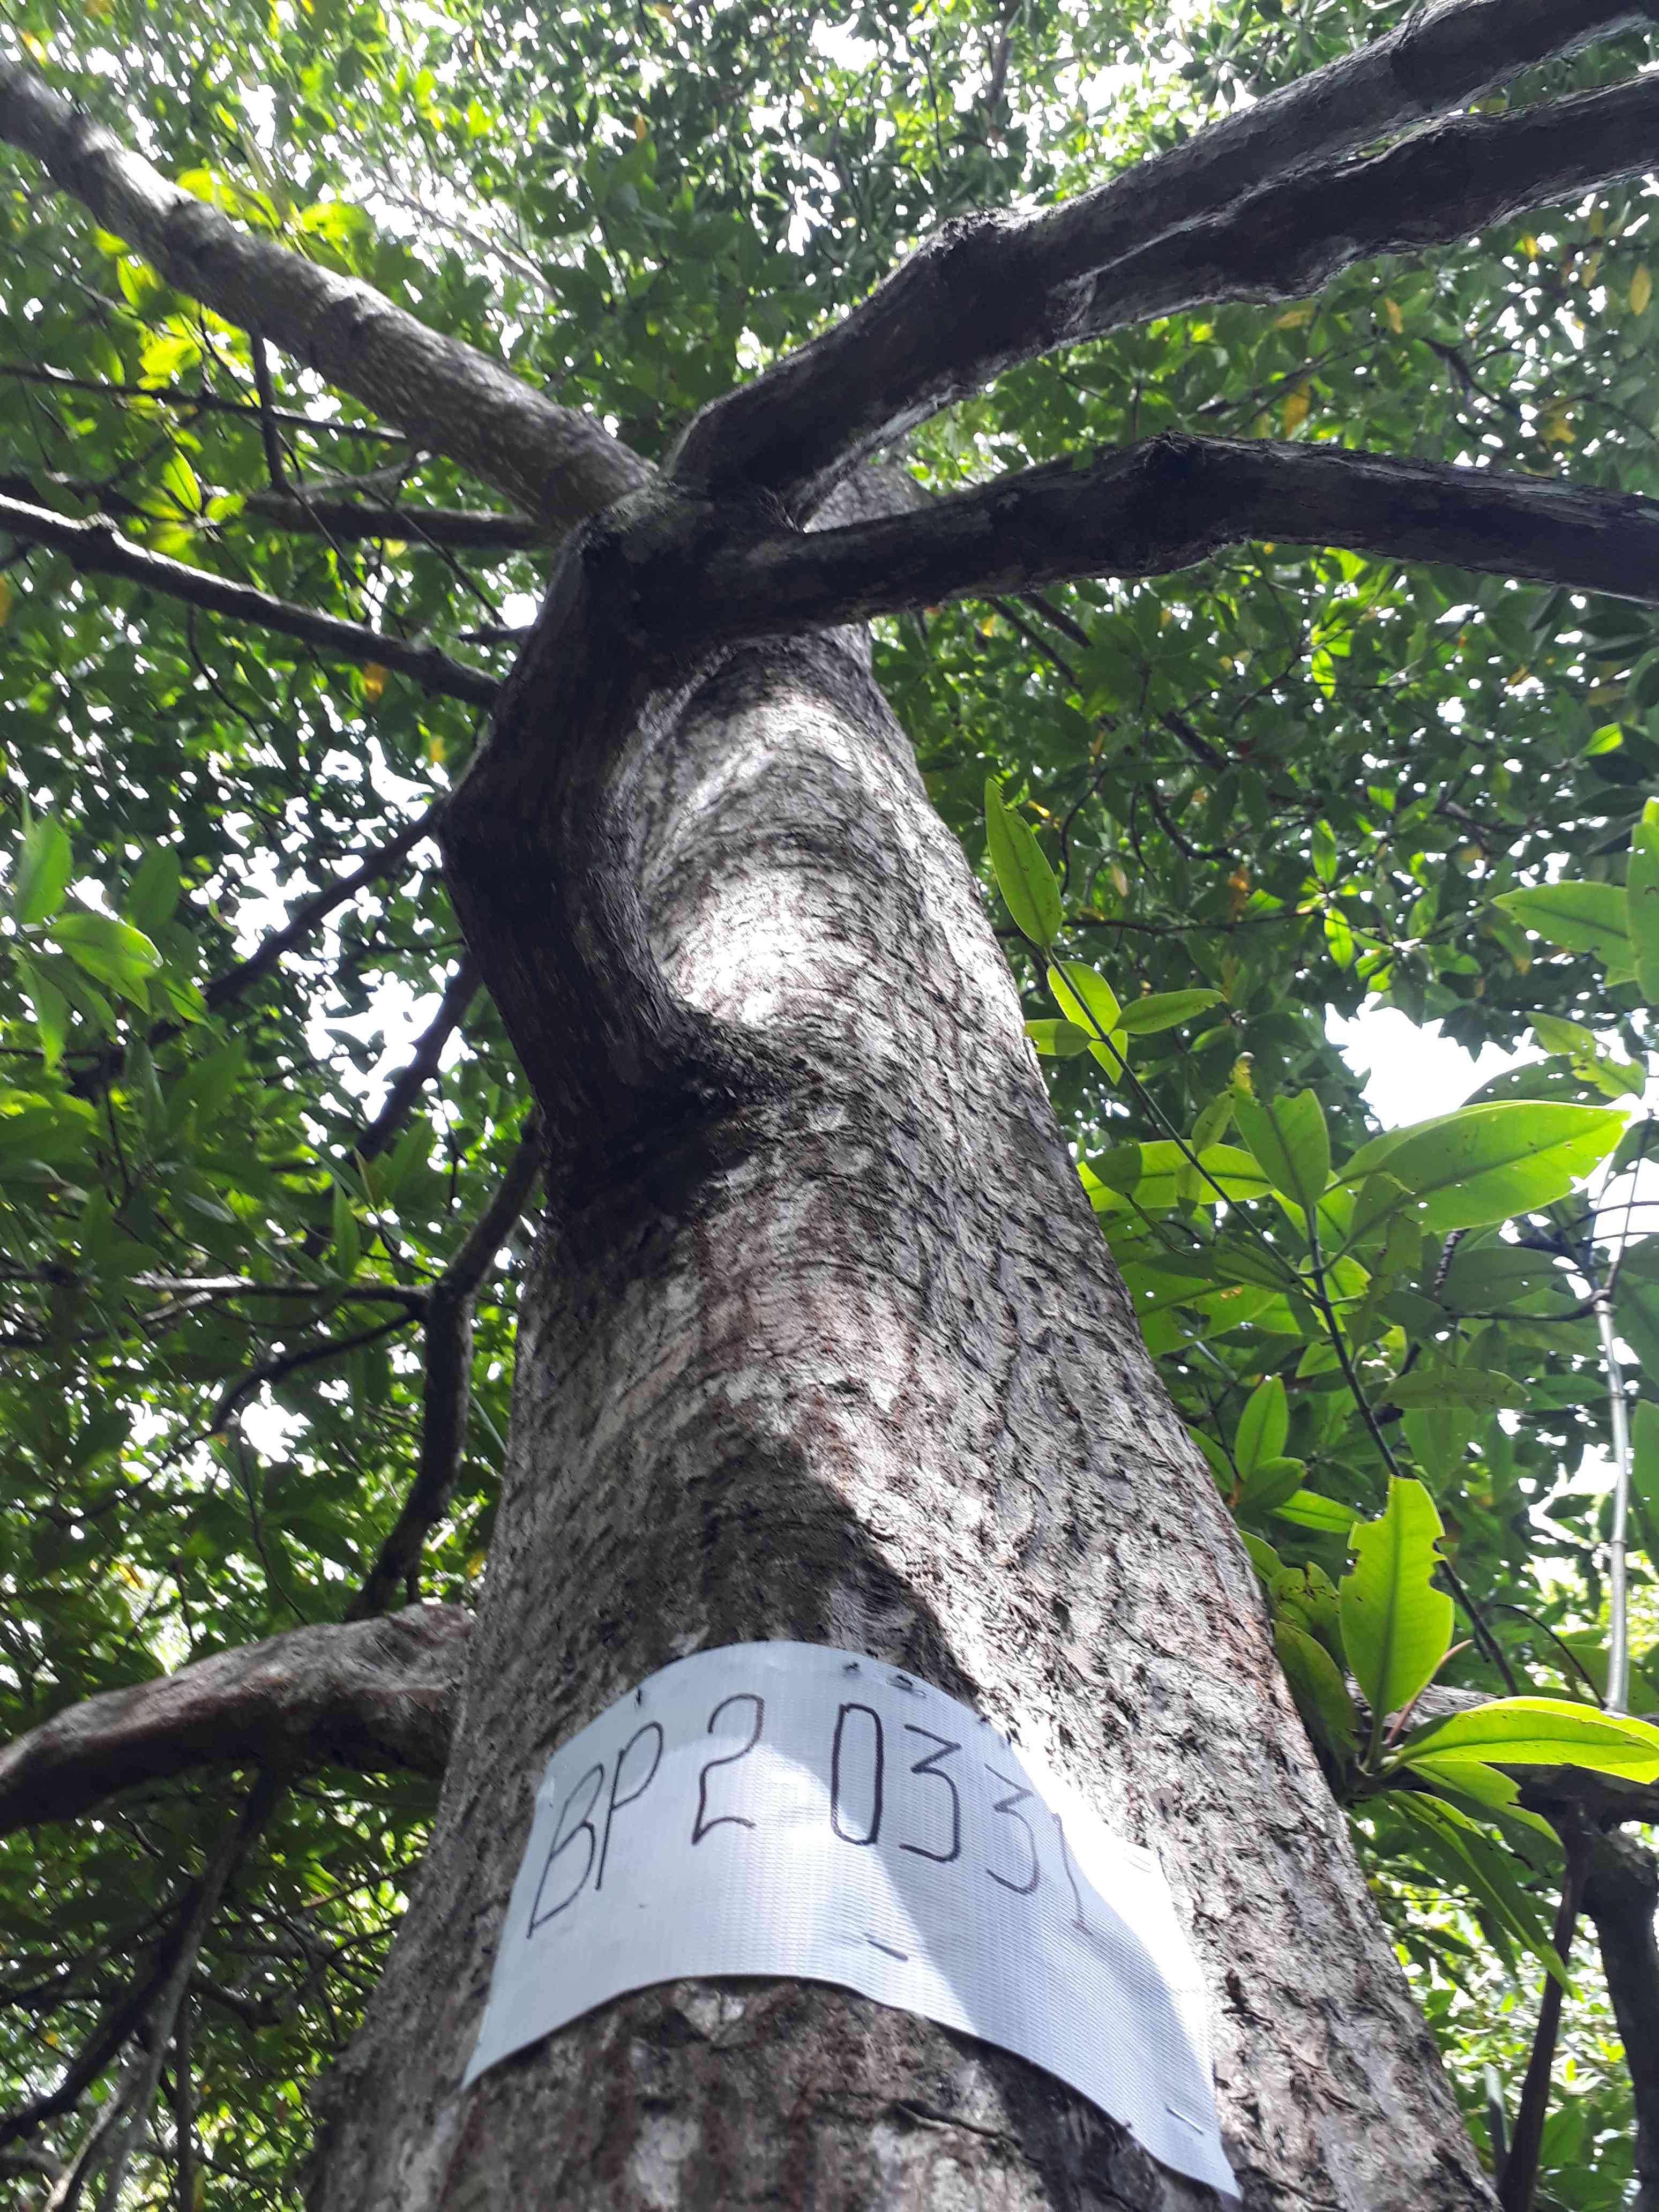 BP2 0331